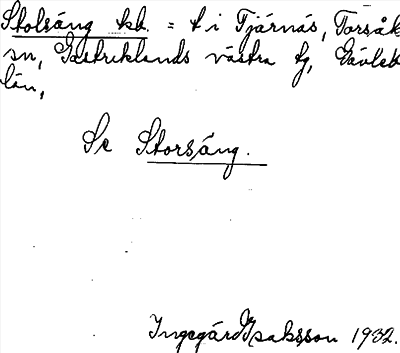 Stolsäng kb. = t i Tjärnäs, Torsåk
sn, Gästriklands västra tg, Gävleb
län,
Se Storsäng.
Ingegärd Isaksson 1932.